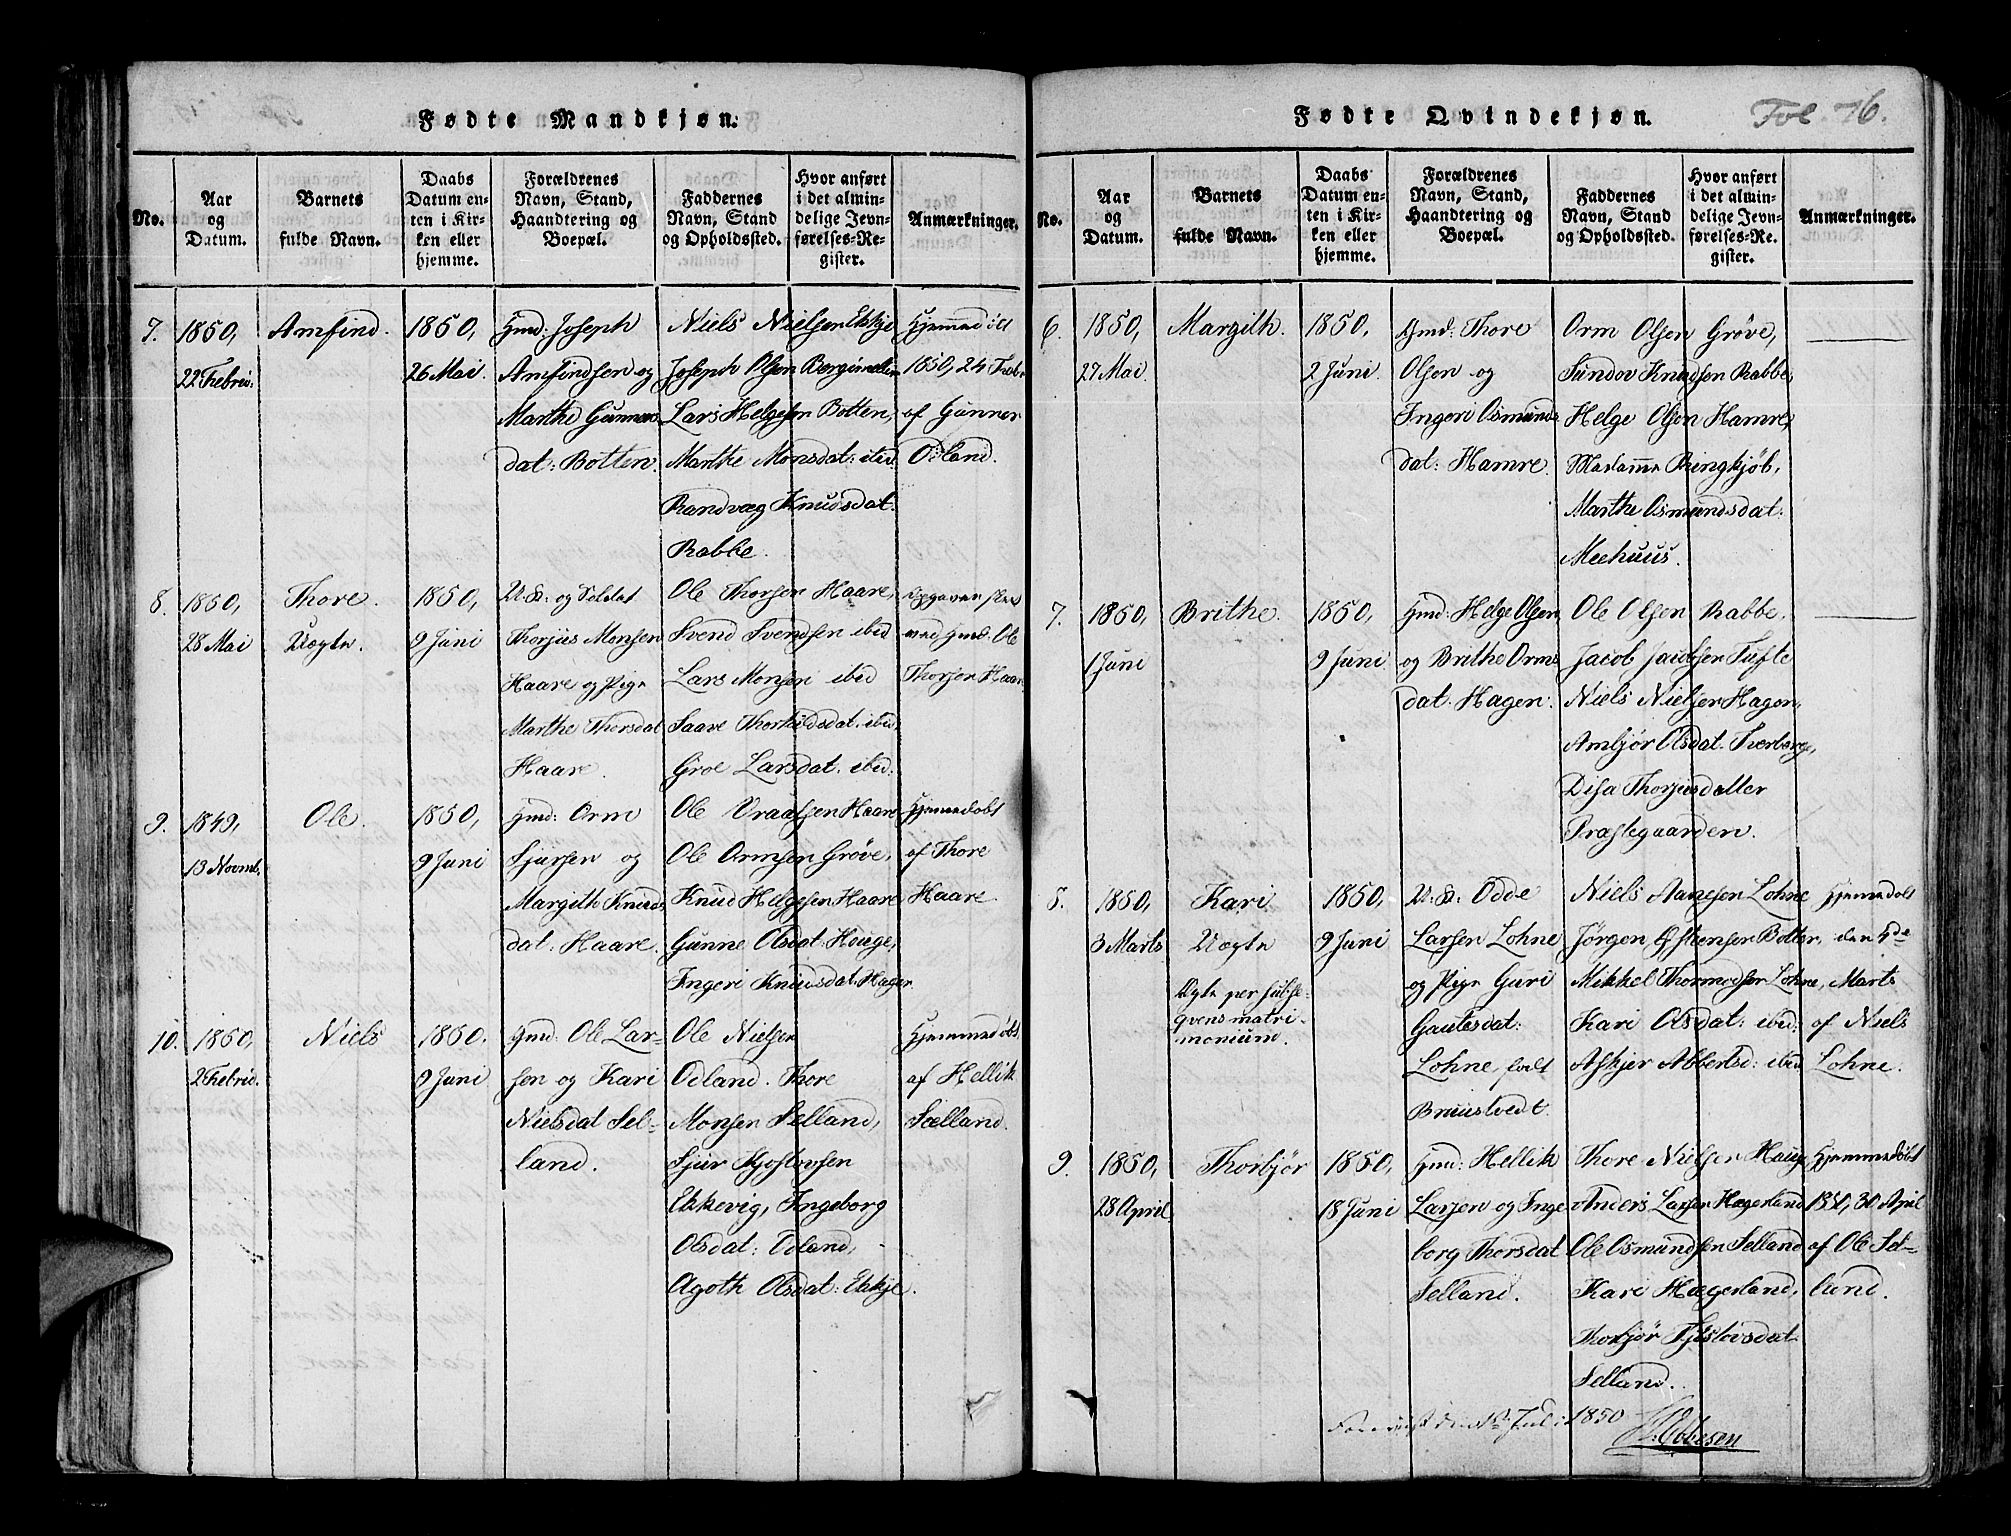 Fødte Mandkjøn.
No.
Aar
og
Datum.
Barnets
fulde Navn.
Daabs
Datum en-
ten i Kir-
ken eller
hjemme.
Forældrenes
Navn, Stand,
Haandtering og
Boepæl.
Faddernes
Navn, Stand
og Opholdssted.
Hvor anført
i det almin-
delige Jevn-
førelses-Re-
gister.
Anmærkninger.
7.
1850,
22 Febru:
Arnfind.
1850,
26 Mai.
Gmd: Joseph
Arnfindsen og
Marthe Gunnars
dat: Botten.
Niels Nielsen Ekkje
Joseph Olsen
Lars Helgesen Botten,
Marthe Monsdat: ibid
Randvæg Knudsdat.
Rabbe.
Hjemmedøbt
1850, 24 Febr
af Gunner
Odland.
8.
1850,
28 Mai
Thore.
Uægte.
1850,
9 Juni
U. St: og Soldat
Thorjus Monsen
Haare og Pige
Marthe Thorsdat
Haare.
Ole Thorsen Haare,
Svend Svendsen ibid
Lars Monsen ibid
Saave Thorkildsdat. ibid.
Groe Larsdat. ibid.
ved Gmd: Ole
Thorsen Haare
9.
1849,
13 Novmb.
Ole.
1850,
9 Juni
Gmd: Orm
Sjursen og
Margith Knuds
dat: Haare.
Ole Vraalsen Haare
Ole Ormsen Grøve,
Knud Helgesen Haare,
Gunne Olsdat: Houge,
Ingeri Knudsdat. Hagen
Hjemmedøbt
af Thore
Haare.
10.
1850,
2 Febru.
Niels
1850.
9 Juni
Gmd: Ole Lar-
sen og Kari
Nielsdat Sel-
land.
Ole Nielsen
Odland. Thore
Monsen Selland,
Sjur Gjostonsen
Ekkevig, Ingeborg
Olsdat: Odland,
Agoth Olsdat: Ekkje.
Hjemmedøbt
af Hellik
Sælland.
Fødte Qvindekjøn.
Fol. 76.
No.
Aar
og
Datum.
Barnets
fulde Navn.
Daabs
Datum en-
ten i Kir-
ken eller
hjemme.
Forældrenes
Navn, Stand,
Haandtering og
Boepæl.
Faddernes
Navn, Stand
og Opholdssted.
Hvor anført
i det almin-
delige Jevn-
førelses-Re-
gister.
Anmærkninger.
6.
1850,
27 Mai.
Margith.
1850,
2 Juni.
Gmd: Thore
Olsen og
Ingeri Osmunds
dat: Hamre.
Orm Olsen Grøve,
Sundov Knudsen Rabbe,
Helge Olsen Hamre,
Madamme Ringkjøb,
Marthe Osmundsdat.
Meehuus.
7.
1850,
1 Juni
Brithe.
1850,
9 Juni
Gmd: Helge Olsen
og Brithe Orms
dat: Hagen.
Ole Olsen Rabbe.
Jacob Jacobsen Tufte
Niels Nielsen Hagen,
Ambjør Olsdat.
Disa Thorjusdatter
Præstegaarden.
8.
1850,
3 Marts
Kari
Uægte
Ægte per subse-
qvens matri-
monium.
1850,
9 Juni
U. St: Odde
Larsen Lohne
og Pige Guri
Gautesdat:
Lohne, født
Bruustvedt.
Niels Aanesen Lohne
Jørgen Østensen Botten,
Mikkel Thormodsen Lohne,
Kari Olsdat: ibid:
Askjer Abbertsd: ibid
Hjemmedøbt
den 5de
Marts
af Niels
Lohne.
9.
1850,
28 April
Thorbjør
1850,
18 Juni
Gmd: Hellik
Larsen og Inge
borg Thorsdat
Selland.
Thore Nielsen Houge
Anders Larsen Hægerland
Ole Osmundsen Selland
Kari Hægerland,
Thorbjør Tjøstovsdat.
Selland.
Hjemmedøbt
1850, 30 April
af Ole Sel-
land.
Juli 1850
Ebbesen